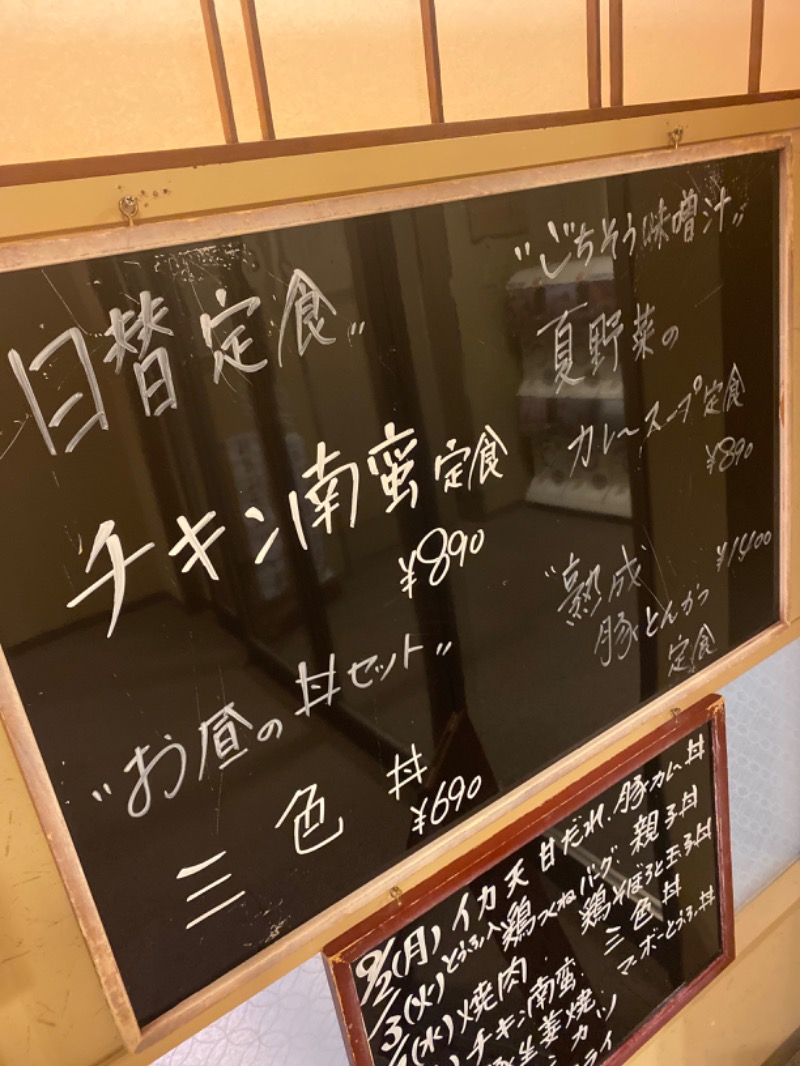 日替定食"
チキン南蛮定食
¥890
"お昼の丼セット"
三色丼
¥690
"ごちそう味噌汁"
夏野菜の
カレースープ定食
¥890
"熟成"
豚とんかつ
定食
¥1400
9/2(月) イカ天甘だれ. 豚カレー丼
/3(火) とうふ入鶏つくねバーグ. 親子丼
(水) 焼肉. 鶏そぼろと玉子丼
チキン南蛮. 三色丼
生姜焼. マーボーとうふ丼
カツ
ライ